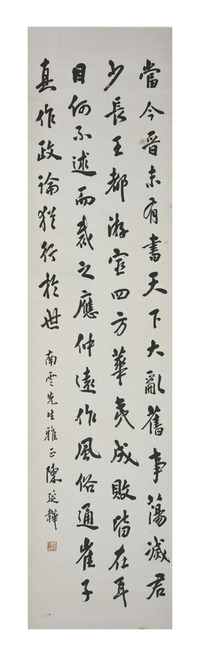 當今晉未有書天下大亂舊事蕩滅君
少長王都游宦四方華夷成敗皆在耳
目何不述而裁之應仲遠作風俗通崔子
真作政論猶行於世
南雲先生雅正 陳延韡